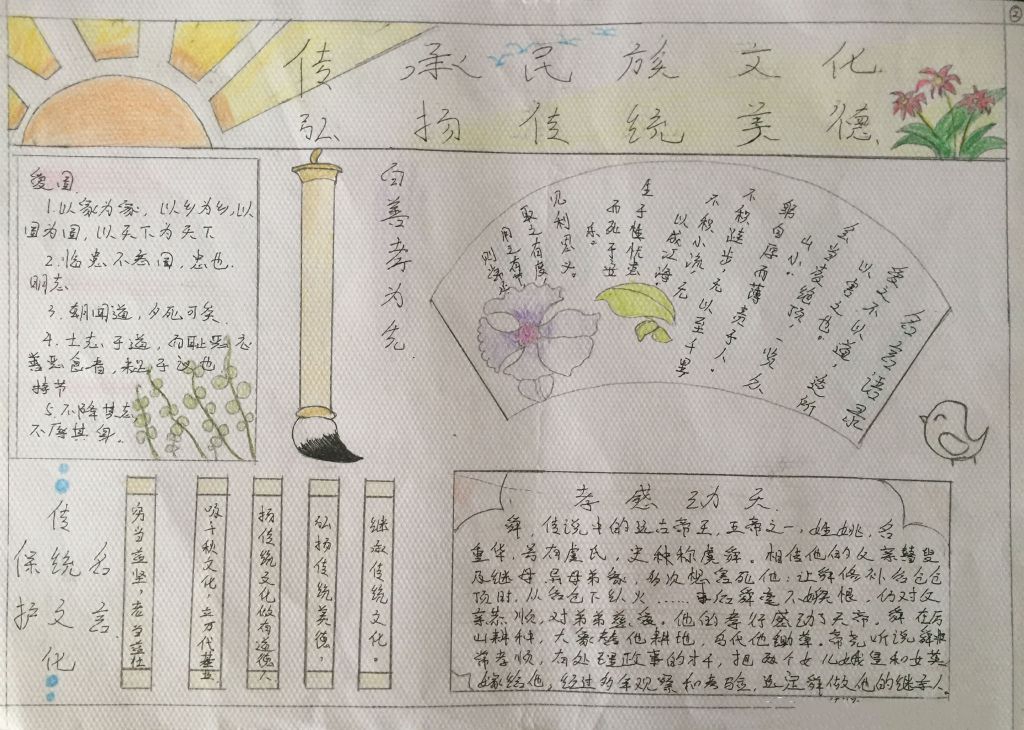 ②
传承民族文化
弘扬传统美德
爱国
1.以家为家,以乡为乡,以
国为国,以天下为天下
2.临患不忘国,忠也.
明志
3.朝闻道,夕死可矣.
4.士志于道,而耻恶衣
恶食者,未足于议也
持节
5.不降其志,
不辱其身。
百善孝为先
名言语录
爱之不以道,适所
以害之也。
会当凌绝顶,一览众
山小。
躬自厚而薄责于人。
不积跬步,无以至千里
不积小流,无
以成江海。
生于忧患
而死于安
乐。
见利思义。
取之有度
用之有节
传统文化
保护
名言
穷当益坚,老当益壮
咏千秋文化,立万代基业
扬传统文化做有道德人
弘扬传统美德,
继承传统文化。
孝感动天
舜,传说中的远古帝王,五帝之一,姓姚,名
重华,号有虞氏,史称称虞舜。相传他的父亲瞽叟
及继母、异母弟象,多次想害死他:让舜修补谷仓仓
顶时,从谷仓下纵火……事后舜毫不嫉恨,仍对父
亲恭顺,对弟弟慈爱。他的孝行感动了天帝。舜在历
山耕种,大象替他耕地,鸟代他锄草。帝尧听说舜非
常孝顺,有处理政事的才干,把两个女儿娥皇和女英
嫁给他,经过多年观察和考验,选定舜做他的继承人.